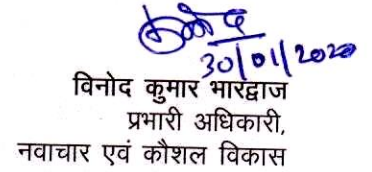 30/01/2020
विनोद कुमार भारद्वाज
प्रभारी अधिकारी,
नवाचार एवं कौशल विकास